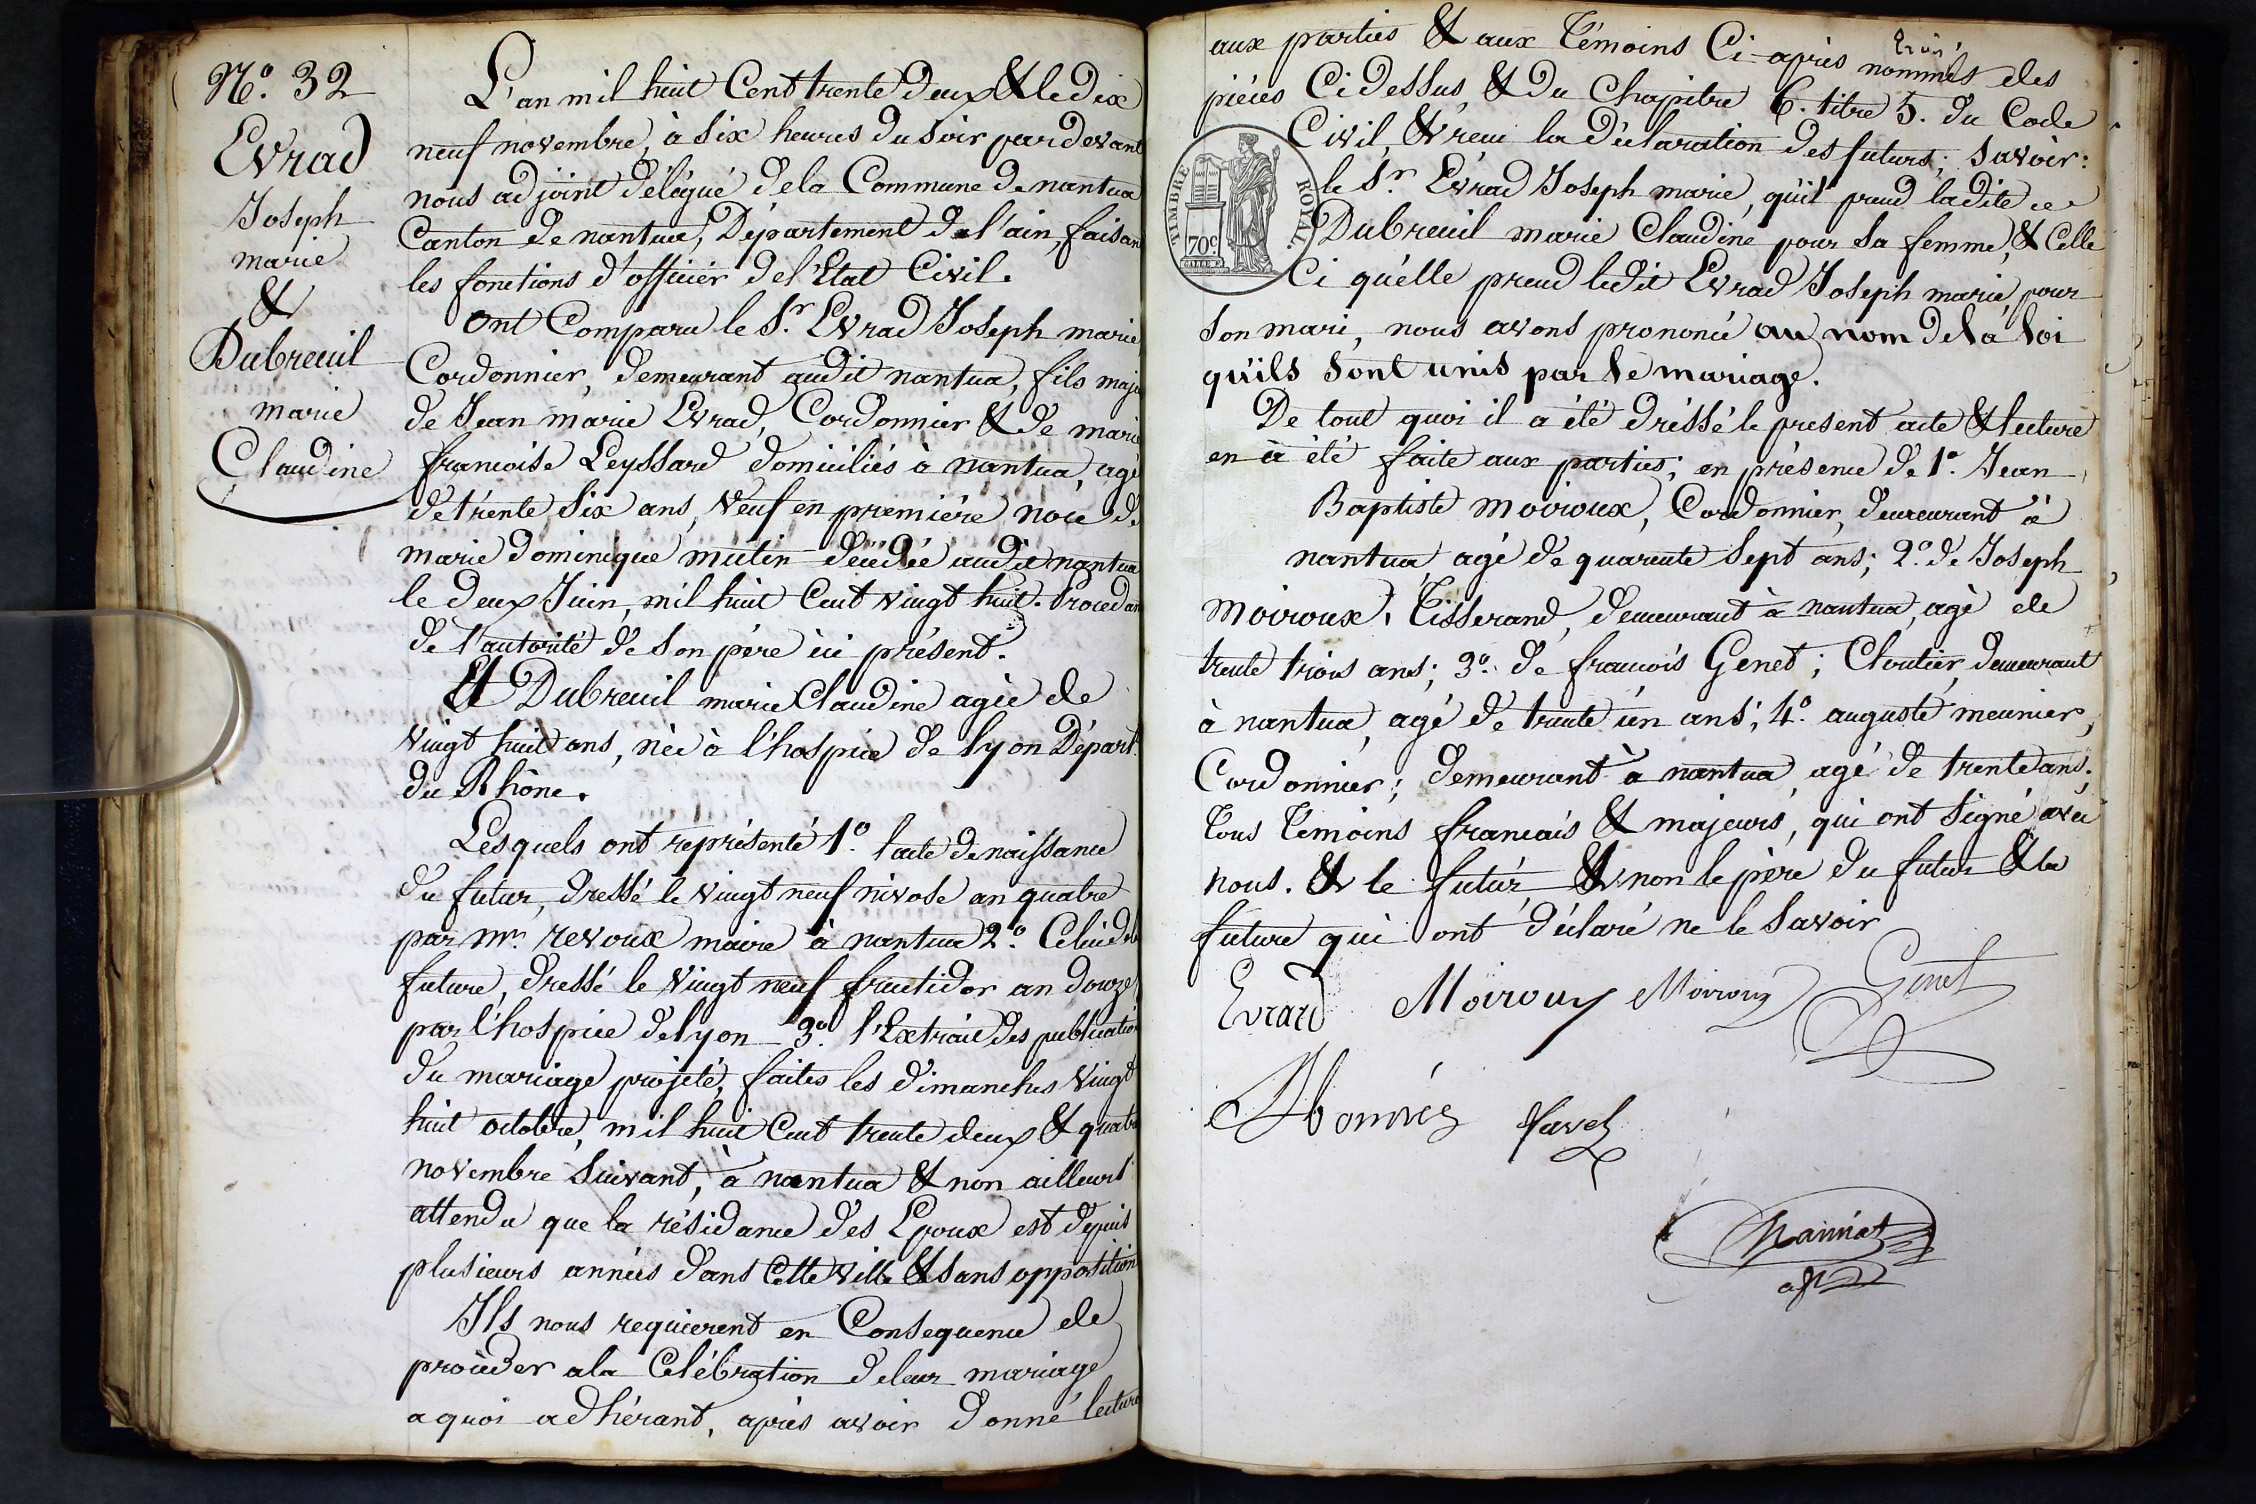 N.º 32
Evrad
Joseph
marie
&
Dubreuil
marie
Claudine
L'an mil huit Cent trente deux & le dix
neuf novembre, à six heures du soir par devant
nous adjoint délégué de la Commune de nantua
Canton de nantua, Département de l'ain, faisan
les fonctions d'officier de l'Etat Civil.
Ont Comparu le S.r Evrad Joseph marie
Cordonnier, demeurant audit nantua, fils maje
de Jean marie Evrad, Cordonnier & de marie
francoise Leyssard domiciliés à nantua, agé
de trente six ans, veuf en première noce de
marie dominique mutin décédée audit nantua
le deux Juin, mil huit Cent vingt huit. Procedan
de l'autorité de son père ici présent.
Et Dubreuil marie Claudine agée de
vingt huit ans, née à l'hospice de lyon Départ.
du Rhône.
Lesquels ont représenté 1.º l'acte de naissance
du futur, dressé le vingt neuf nivose an quatre
par m.r revoux maire à nantua 2.º Celui de la
future, dressé le vingt neuf fructidor an douze
par l'hospice de lyon 3.º l'Extrait des publication
du mariage projeté, faites les dimanches vingt
huit octobre, mil huit Cent trente deux & quatre
novembre suivant, à nantua & non ailleurs
attendu que la résidance des Epoux est depuis
plusieurs années dans Cette ville & sans opposition
Ils nous requierent en Consequence de
procéder a la Celébration de leur mariage
a quoi adhérant, après avoir donné lecture
aux parties & aux témoins Ci-après nommés des
pièces Ci dessus & du Chapitre 6. titre 5. du Code
Civil, & reçu la déclaration des futurs; savoir:
le S.r Evrad Joseph marie, qu'il prend ladite
Dubreuil marie Claudine pour sa femme, & Celle
Ci qu'elle prend ledit Evrad Joseph marie pour
son mari, nous avons prononcé au nom de la loi
qu'ils sont unis par le mariage.
De tout quoi il a été dréssé le present acte & lecture
en a été faite aux parties; en présence de 1.º Jean
Baptiste Moiroux, Cordonnier, demeurant à
nantua agé de quarante sept ans; 2.º de Joseph
Moiroux, Tisserand, demeurant à nantua, agé de
trente trois ans; 3.º de francois Genet; Cloutier, demeurant
à nantua, agé de trente un ans; 4.º auguste meunier,
Cordonnier; demeurant à nantua, agé de trente ans;
tous témoins francais & majeurs, qui ont signé avec
nous. & le futur & non le père du futur & la
future qui ont déclaré ne le savoir
TIMBRE ROYAL
70c
Evrard Moiroux Moiroux Genet